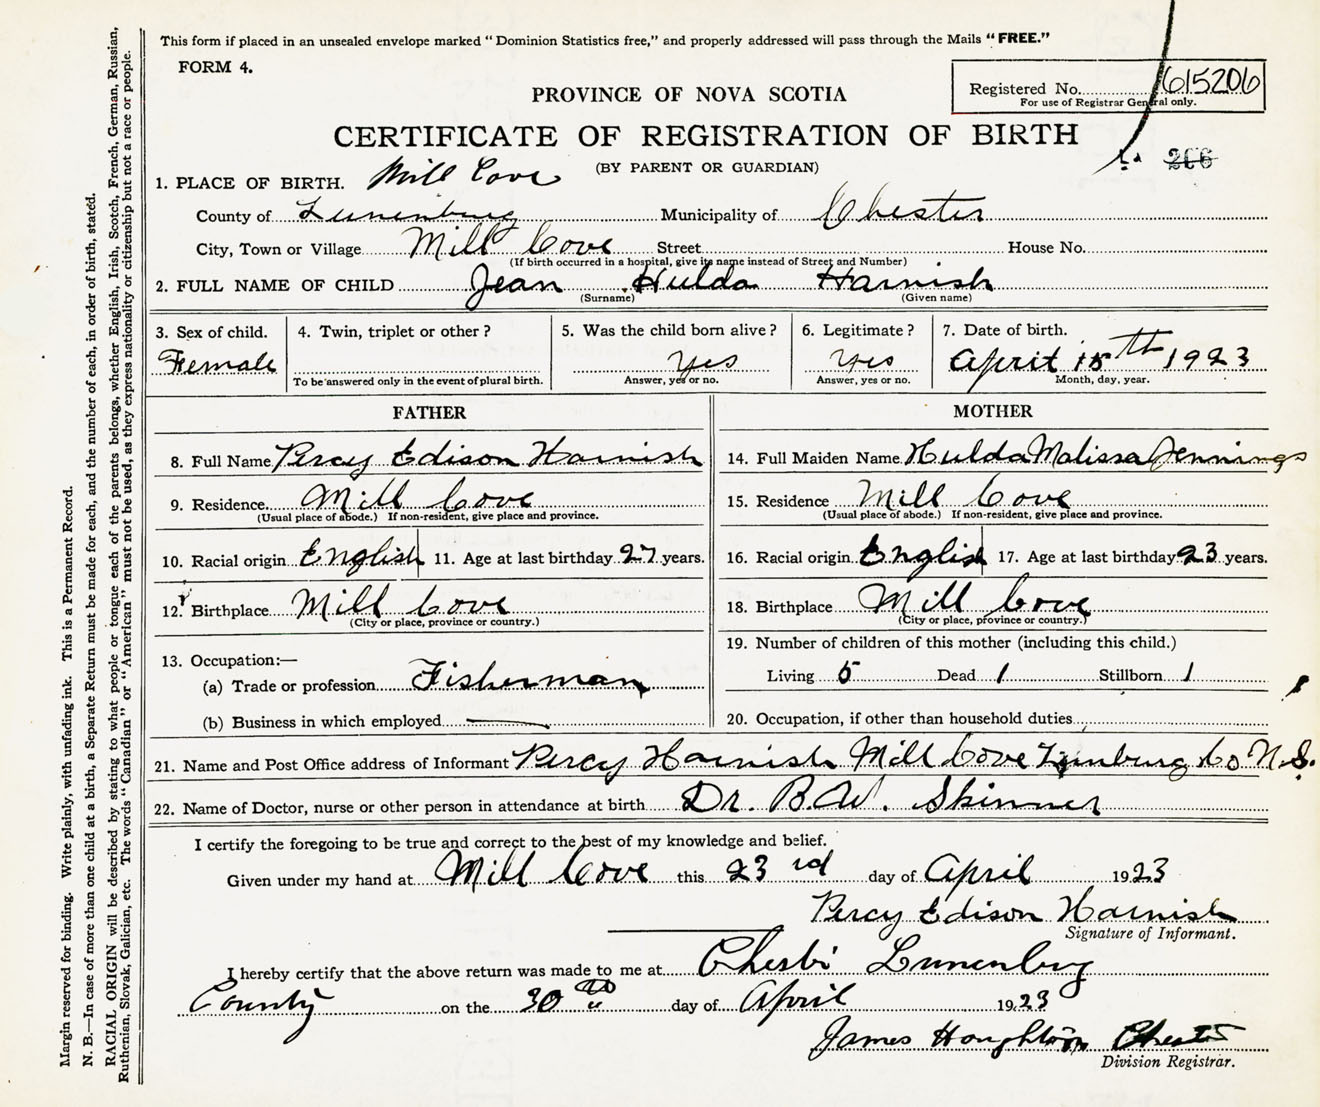 This form if placed in an unsealed envelope marked "Dominion Statistics free," and properly addressed will pass through the Mails "FREE."
FORM 4.
Registered No. 615206
For use of Registrar General only.
PROVINCE OF NOVA SCOTIA
CERTIFICATE OF REGISTRATION OF BIRTH
(BY PARENT OR GUARDIAN)
206
1. PLACE OF BIRTH. Mill Cove
County of Lunenburg Municipality of Chester
City, Town or Village Mill Cove Street House No.
(If birth occurred in a hospital, give its name instead of Street and Number)
2. FULL NAME OF CHILD Jean Hulda Harnish
(Surname) (Given name)
3. Sex of child. 4. Twin, triplet or other? 5. Was the child born alive? 6. Legitimate? 7. Date of birth.
Female Yes Yes April 15th 1923
To be answered only in the event of plural birth. Answer, yes or no. Answer, yes or no. Month, day, year.
FATHER MOTHER
8. Full Name Percy Edison Harnish 14. Full Maiden Name Hulda Malissa Jennings
9. Residence Mill Cove 15. Residence Mill Cove
(Usual place of abode.) If non-resident, give place and province. (Usual place of abode.) If non-resident, give place and province.
10. Racial origin English 11. Age at last birthday 27 years. 16. Racial origin English 17. Age at last birthday 23 years.
12. Birthplace Mill Cove 18. Birthplace Mill Cove
(City or place, province or country.) (City or place, province or country.)
13. Occupation:— 19. Number of children of this mother (including this child.)
(a) Trade or profession Fisherman Living 5 Dead 1 Stillborn 1
(b) Business in which employed 20. Occupation, if other than household duties
21. Name and Post Office address of Informant Percy Harnish Mill Cove Co. N.S.
22. Name of Doctor, nurse or other person in attendance at birth Dr. B.W. Skinner
I certify the foregoing to be true and correct to the best of my knowledge and belief.
Given under my hand at Mill Cove this 23rd day of April 1923
Percy Edison Harnish
Signature of Informant.
I hereby certify that the above return was made to me at Lunenburg
County on the 30th day of April 1923
James Houghton Chester
Division Registrar.
Margin reserved for binding. Write plainly, with unfading ink. This is a Permanent Record.
N. B.—In case of more than one child at a birth, a Separate Return must be made for each, and the number of each, in order of birth, stated.
RACIAL ORIGIN will be described by stating to what people or tongue each of the parents belongs, whether English, Irish, Scotch, French, German, Russian,
Ruthenian, Slovak, Galician, etc. The words "Canadian" or "American" must not be used, as they express nationality or citizenship but not a race or people.